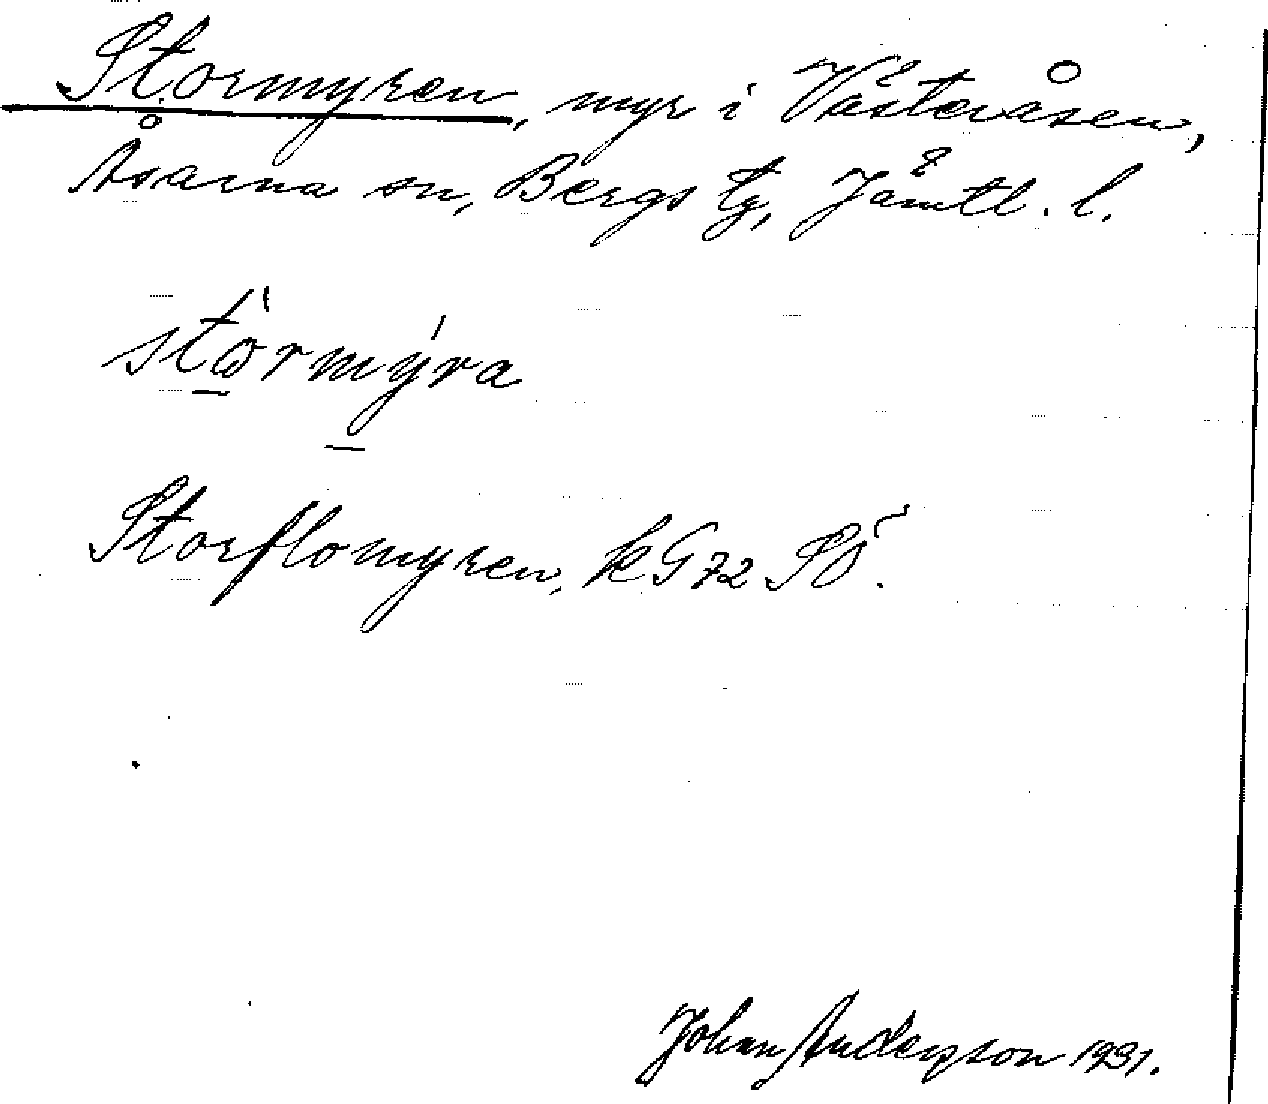 Stormyren, myr i Västeråsen,
Åsarna sn, Bergs tg, Jämtl. l.
stormyra
Storflomyren, kG72 SÖ.
Johan Anderson 1931.